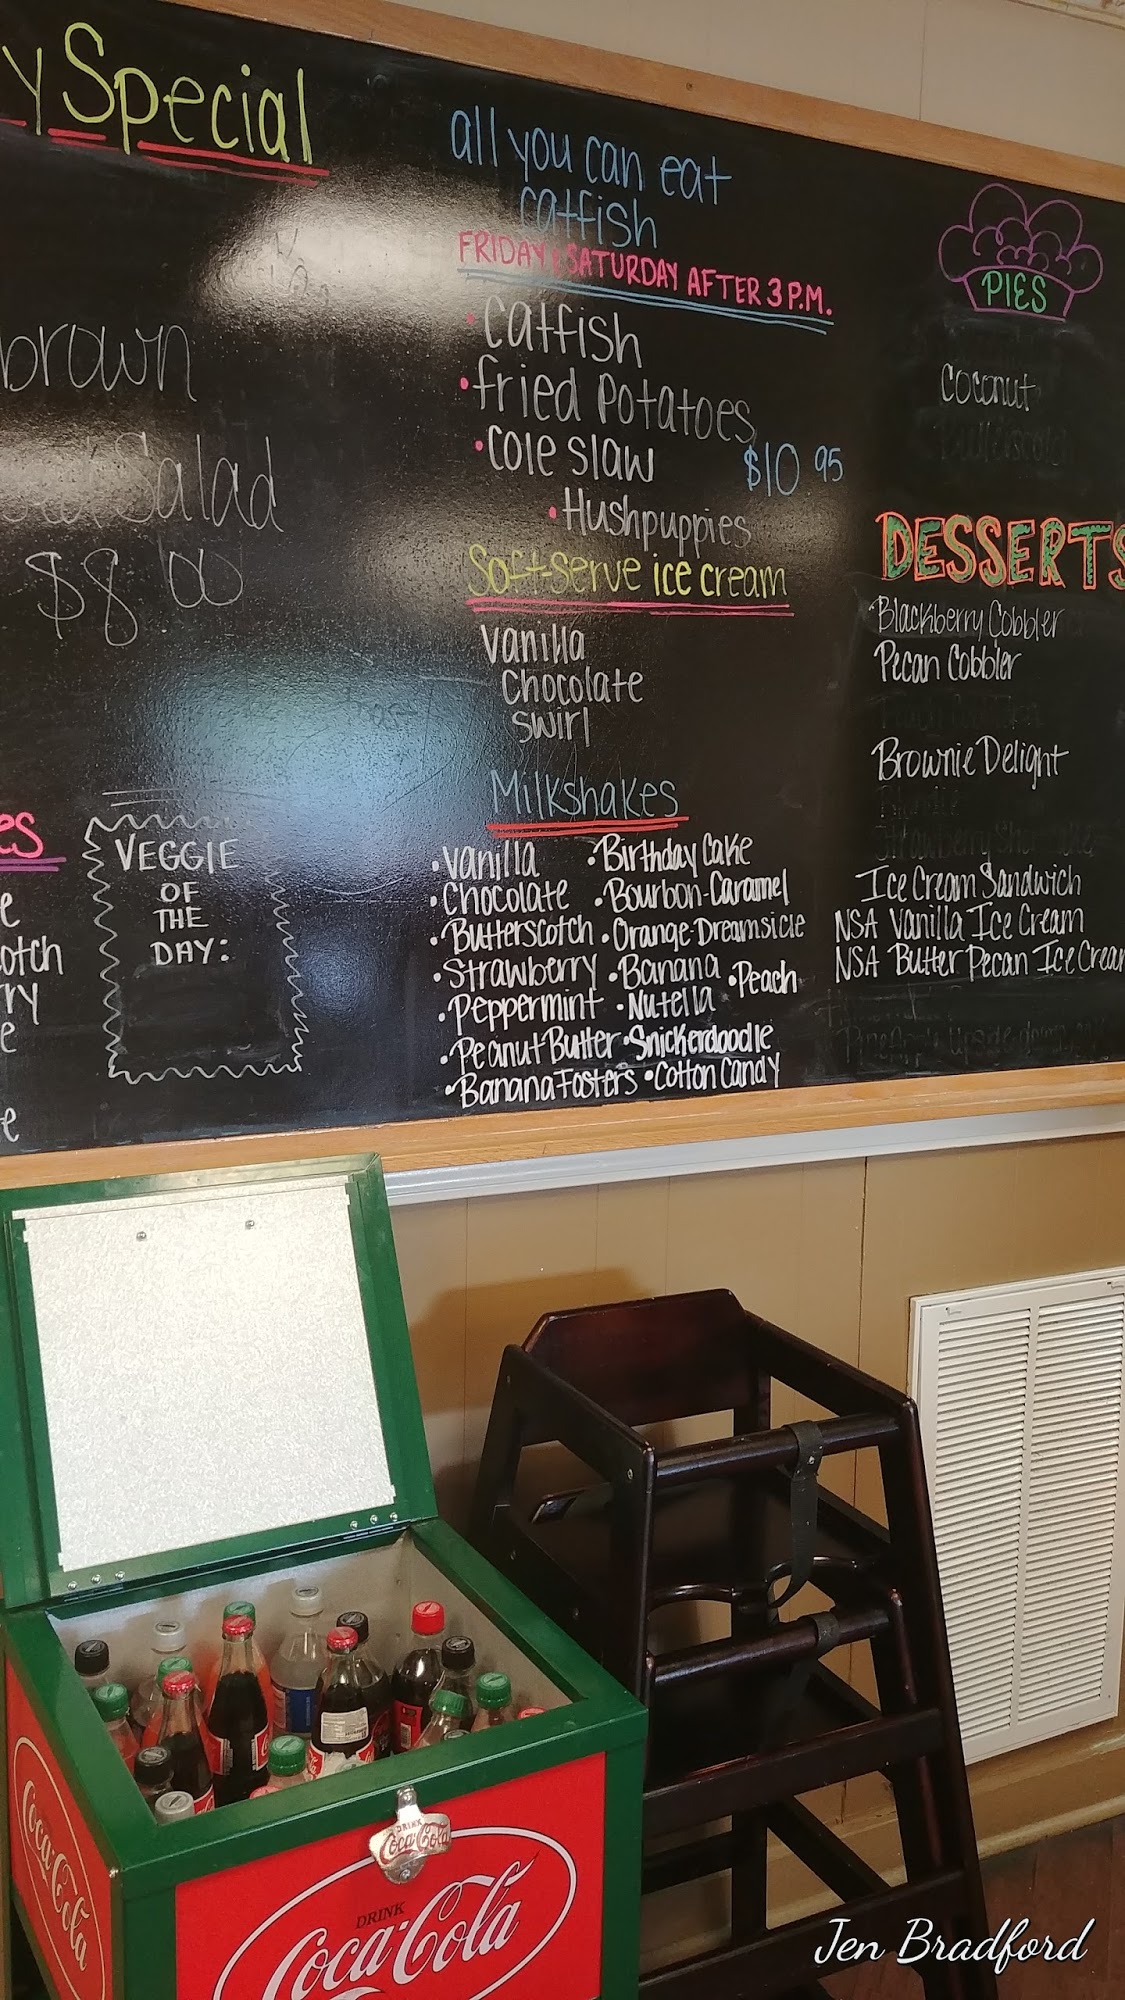 y Special
brown
Salad
$8.00
es
e
otch
ry
e
e
VEGGIE
OF
THE
DAY:
all you can eat
catfish
FRIDAY & SATURDAY AFTER 3 P.M.
• Catfish
• fried Potatoes
• Cole slaw
$10 95
• Hushpuppies
Soft-serve ice cream
Vanilla
Chocolate
Swirl
Milkshakes
• Vanilla • Birthday Cake
• Chocolate • Bourbon-Caramel
• Butterscotch • Orange-Dreamsicle
• Strawberry • Banana • Peach
• Peppermint • Nutella
• Peanut Butter • Snickerdoodle
• Banana Fosters • Cotton Candy
PIES
Coconut
Butterscotch
DESSERTS
Blackberry Cobbler
Pecan Cobbler
Brownie Delight
Ice Cream Sandwich
NSA Vanilla Ice Cream
NSA Butter Pecan Ice Cream
Pineapple Upside down
Coca-Cola
DRINK
Coca-Cola
DRINK
Coca-Cola
Jen Bradford